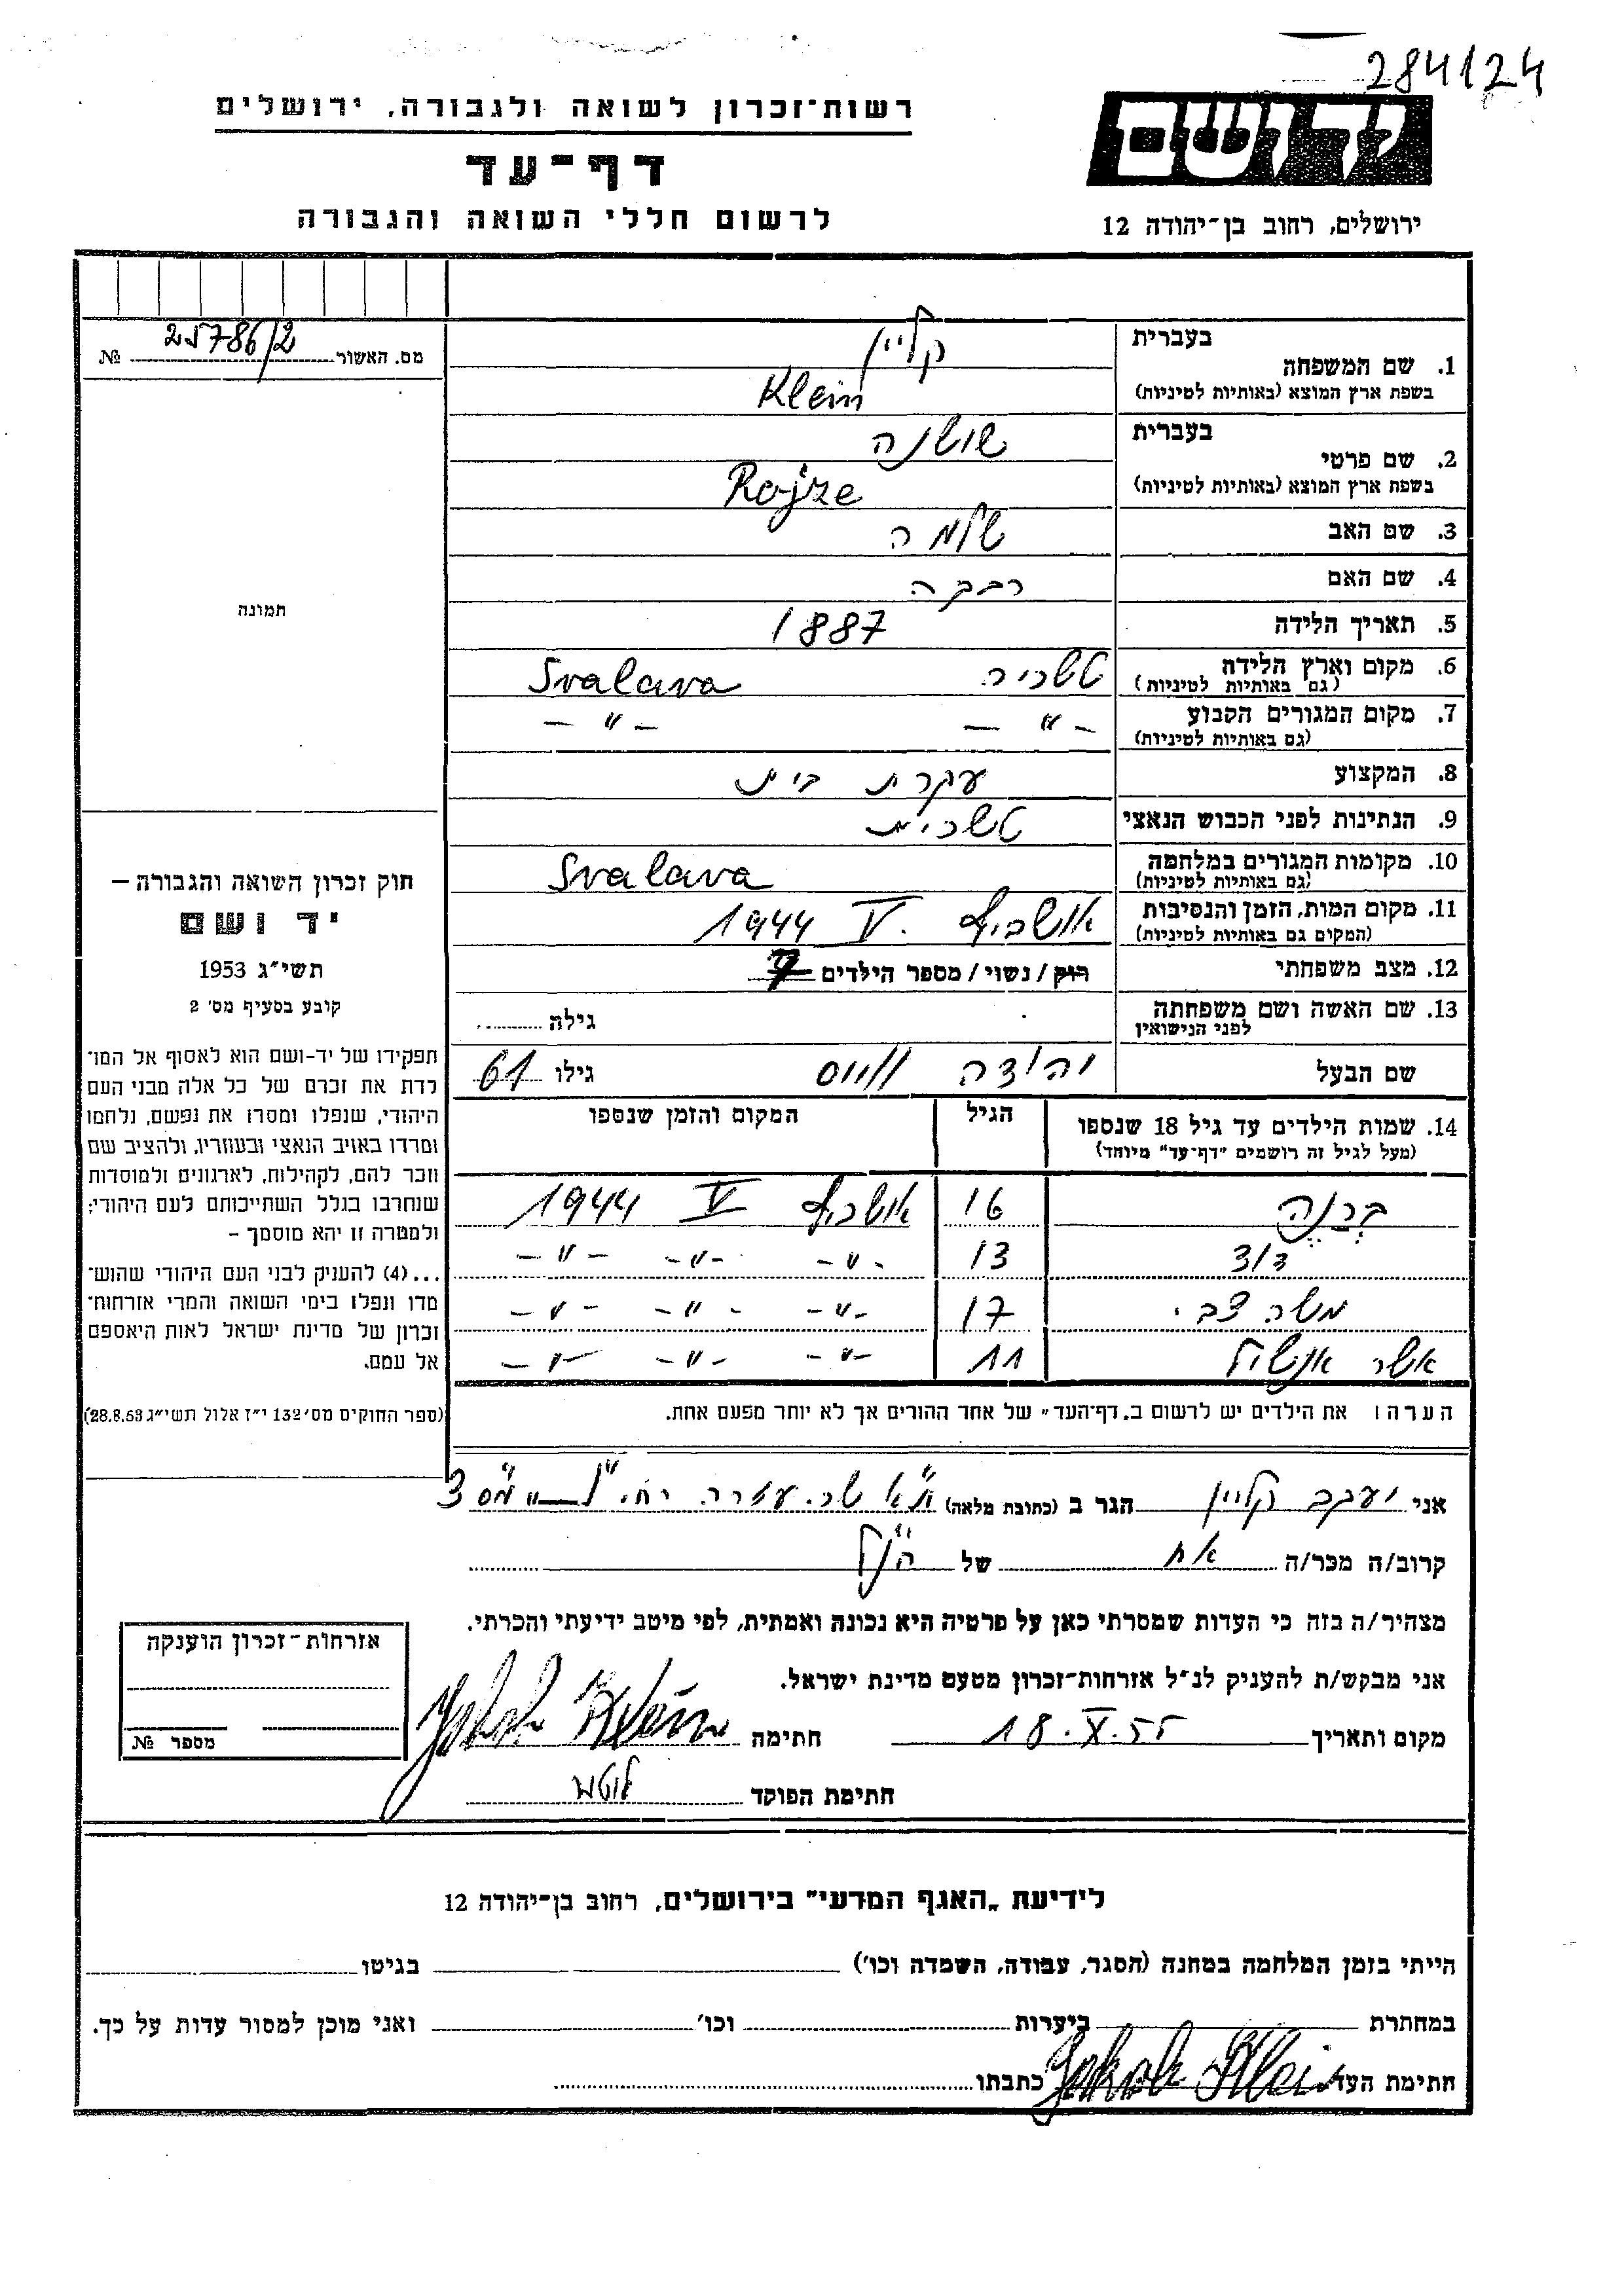 284124
רשות־זכרון לשואה ולגבורה, ירושלים
יד ושם
דף־עד
לרשום חללי השואה והגבורה
ירושלים, רחוב בן־יהודה 12
מס. האשור 25786/2 №
תמונה
חוק זכרון השואה והגבורה —
יד ושם
תשי״ג 1953
קובע בסעיף מס׳ 2
תפקידו של יד-ושם הוא לאסוף אל המו־
לדת את זכרם של כל אלה מבני העם
היהודי, שנפלו ומסרו את נפשם, נלחמו
ומרדו באויב הנאצי ובעוזריו, ולהציב שם
וזכר להם, לקהילות, לארגונים ולמוסדות
שנחרבו בגלל השתייכותם לעם היהודי;
ולמטרה זו יהא מוסמך –
...(4) להעניק לבני העם היהודי שהוש־
מדו ונפלו בימי השואה והמרי אזרחות־
זכרון של מדינת ישראל לאות היאספם
אל עמם.
(ספר החוקים מס׳ 132 י״ז אלול תשי״ג 28.8.53)
בעברית
1. שם המשפחה קליין
בשפת ארץ המוצא (באותיות לטיניות) Klein
בעברית
2. שם פרטי שושנה
בשפת ארץ המוצא (באותיות לטיניות) Rojze
3. שם האב שלמה
4. שם האם רבקה
5. תאריך הלידה 1887
6. מקום וארץ הלידה טשכיה Svalava
(גם באותיות לטיניות)
7. מקום המגורים הקבוע — ״ — — ״ —
(גם באותיות לטיניות)
8. המקצוע עקרת בית
9. הנתינות לפני הכבוש הנאצי טשכית
10. מקומות המגורים במלחמה Svalava
(גם באותיות לטיניות)
11. מקום המות, הזמן והנסיבות אושביץ V. 1944
(המקום גם באותיות לטיניות)
12. מצב משפחתי רוק / נשוי / מספר הילדים 7
13. שם האשה ושם משפחתה גילה
לפני הנישואין
שם הבעל יהודה ווייס גילו 61
14. שמות הילדים עד גיל 18 שנספו הגיל המקום והזמן שנספו
(מעל לגיל זה רושמים ״דף־עד״ מיוחד)
ברנה 16 אושביץ V 1944
דוד 13 -״- -״- -״-
משה צבי 17 -״- -״- -״-
אשר אנשיל 11 -״- -״- -״-
הערה: את הילדים יש לרשום ב„דף־העד״ של אחד ההורים אך לא יותר מפעם אחת.
אני יעקב קליין הגר ב (כתובת מלאה) ת״א שכ. עזרה רח. ״ל״ מס 3
קרוב/ה מכר/ה אח של הנ״ל
מצהיר/ה בזה כי העדות שמסרתי כאן על פרטיה היא נכונה ואמתית, לפי מיטב ידיעתי והכרתי.
אני מבקש/ת להעניק לנ״ל אזרחות־זכרון מטעם מדינת ישראל.
מקום ותאריך 18.X.55 חתימה Jakob Klein
חתימת הפוקד
אזרחות־זכרון הוענקה
מספר №
לידיעת „האגף המדעי״ בירושלים, רחוב בן־יהודה 12
הייתי בזמן המלחמה במחנה (הסגר, עבודה, השמדה וכו׳) בגיטו
במחתרת ביערות וכו׳ ואני מוכן למסור עדות על כך.
חתימת העד Jakob Klein כתבתו